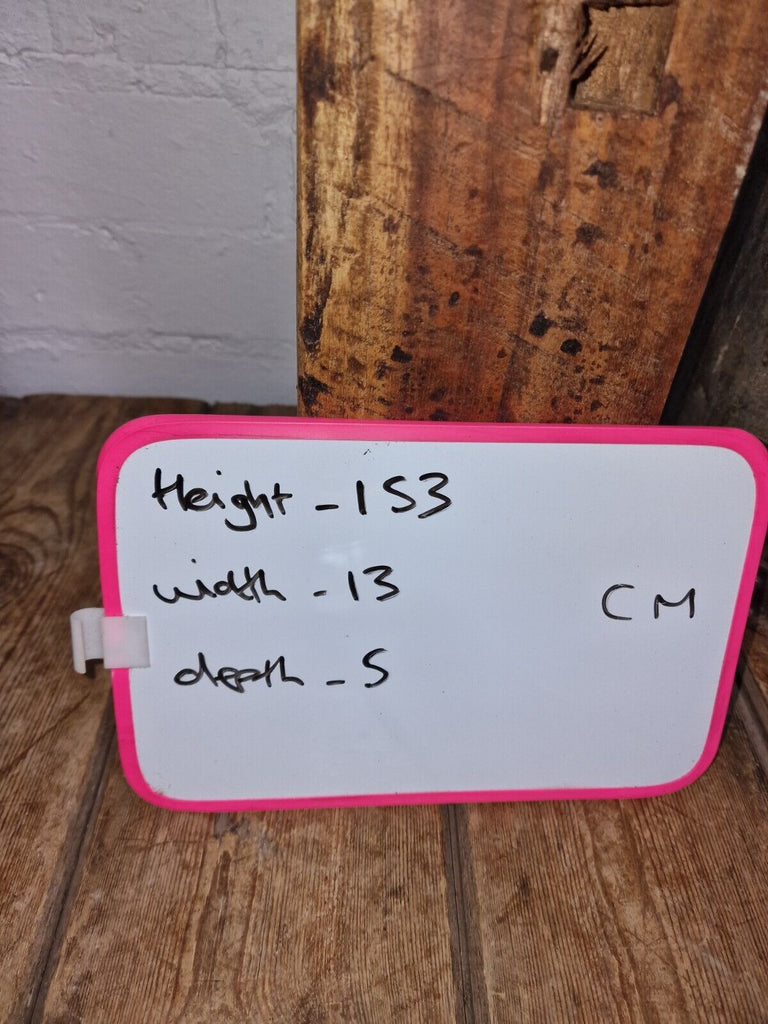 Height - 153
width - 13
CM
depth - 5